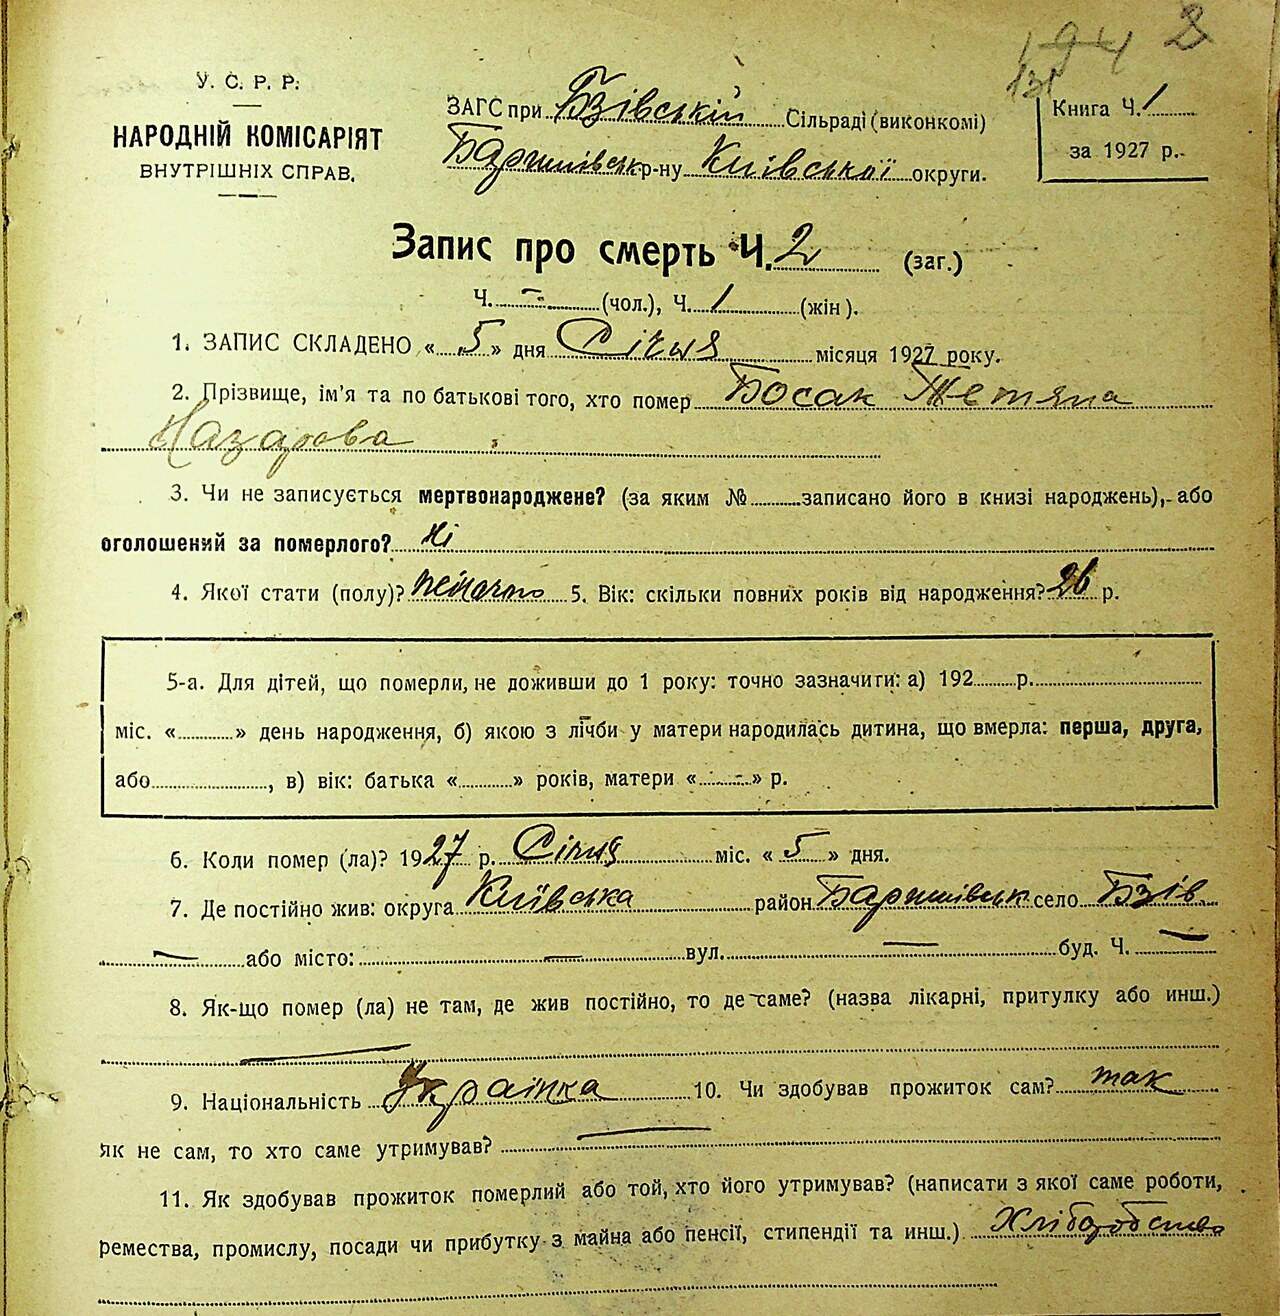 194 8
131
У. С. Р. Р.
НАРОДНІЙ КОМІСАРІЯТ
ВНУТРІШНІХ СПРАВ.
ЗАГС при Бзівській Сільраді (виконкомі)
Баришівськ р-ну Київської округи.
Книга Ч. 1
за 1927 р.
Запис про смерть Ч. 2 (заг.)
Ч. – (чол.), Ч. 1 (жін).
1. ЗАПИС СКЛАДЕНО « 5 » дня Січня місяця 1927 року.
2. Прізвище, ім'я та по батькові того, хто помер Босак Тетяна
Назарова
3. Чи не записується мертвонароджене? (за яким № записано його в книзі народжень), або
оголошений за померлого? Ні
4. Якої стати (полу)? 5. Вік: скільки повних років від народження? 26 р.
5-а. Для дітей, що померли, не доживши до 1 року: точно зазначити: а) 192 р.
міс. « » день народження, б) якою з лічби у матери народилась дитина, що вмерла: перша, друга,
або , в) вік: батька « » років, матери « – » р.
6. Коли помер (ла)? 1927 р. Січня міс. « 5 » дня.
7. Де постійно жив: округа Київська район Баришівськ село Бзів
— або місто: — вул. — буд. Ч. —
8. Як-що помер (ла) не там, де жив постійно, то де саме? (назва лікарні, притулку або инш.)
—
9. Національність Українка 10. Чи здобував прожиток сам? так
Як не сам, то хто саме утримував? —
11. Як здобував прожиток померлий або той, хто його утримував? (написати з якої саме роботи,
ремества, промислу, посади чи прибутку з майна або пенсії, стипендії та инш.) Хліборобство